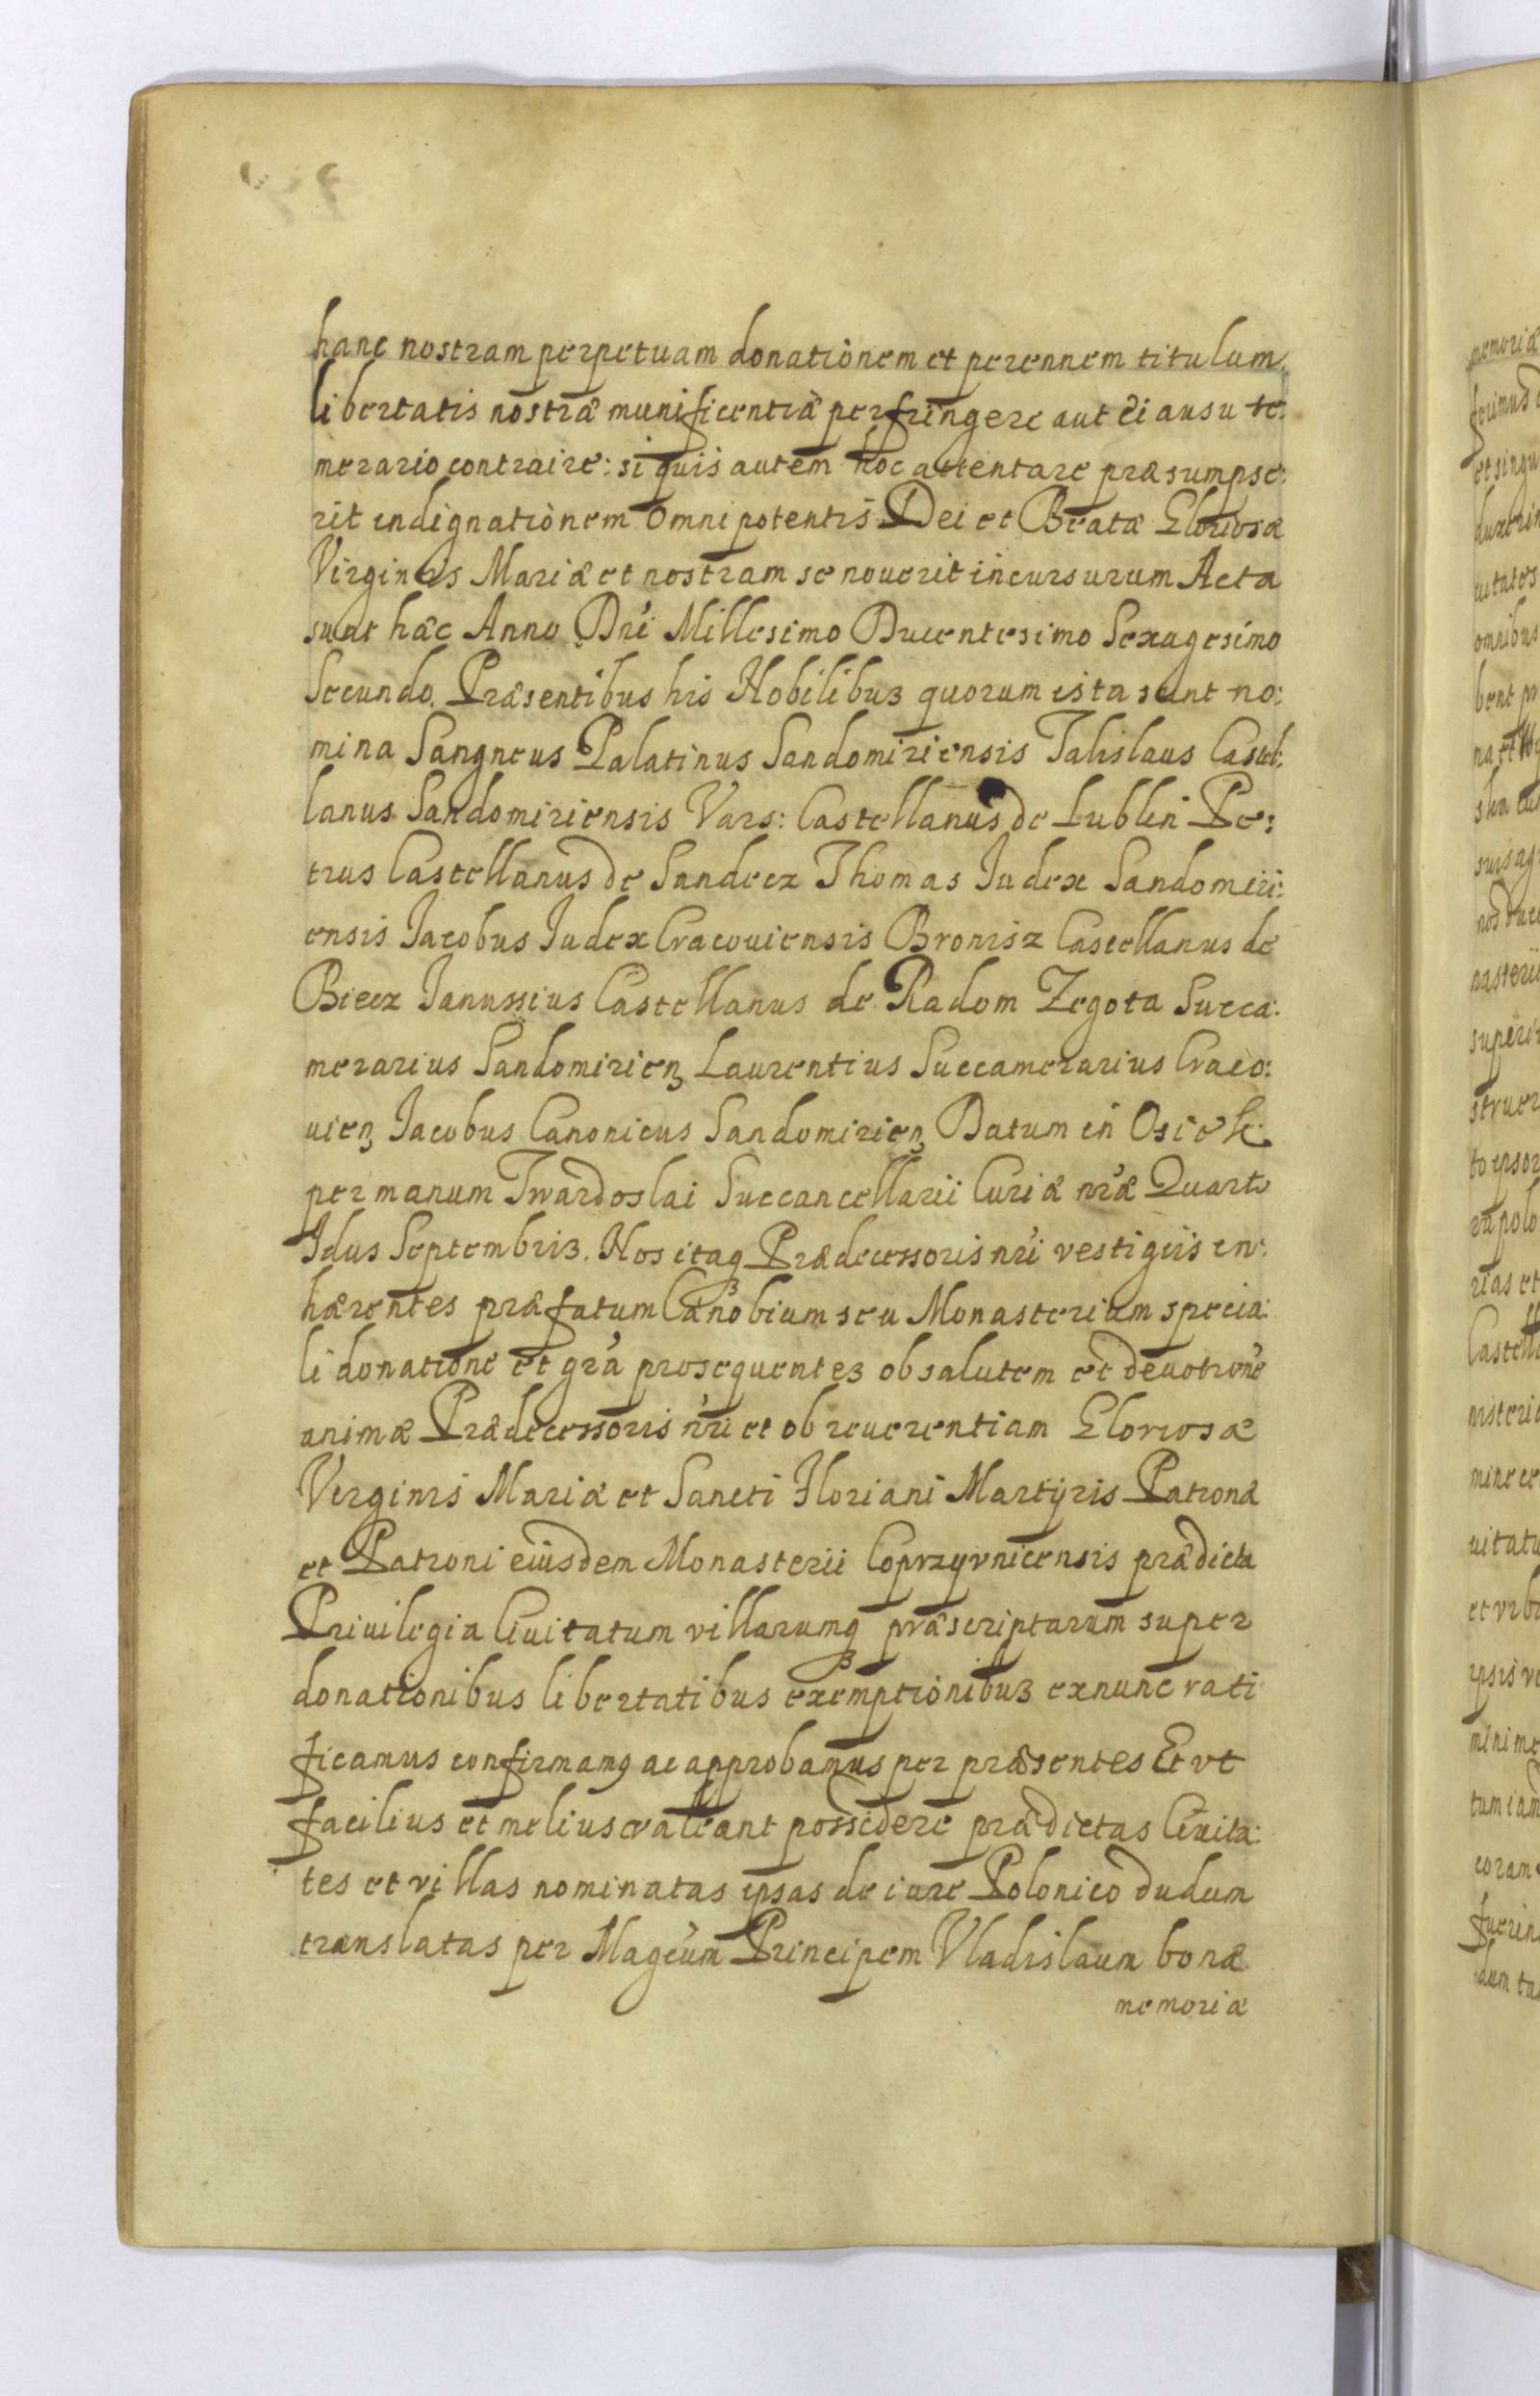 hanc nostram perpetuam donationem et perennem titulum
libertatis nostræ munificentiæ perfringere aut ei ausu te:
merario contraire: si quis autem hoc attentare præsumpse:
rit indignationem Omnipotentis Dei et Beatæ Gloriosæ
Virginis Mariæ et nostram se nouerit incursurum Acta
sunt hæc Anno Dni Millesimo Ducentesimo Sexagesimo
Secundo. Præsentibus his Nobilibus quorum ista sunt no:
mina Sangneus Palatinus Sandomiriensis Talislaus Castel:
lanus Sandomiriensis Vars: Castellanus de Lublin Pe:
trus Castellanus de Sandecz Thomas Iudex Sandomiri:
ensis Iacobus Iudex Cracouiensis Bronisz Castellanus de
Biecz Ianussius Castellanus de Radom Zegota Succa:
merarius Sandomirien Laurentius Succamerarius Craco:
uien Iacobus Canonicus Sandomirien Datum in Osiek
per manum Twardoslai Succancellarii Curiæ nræ Quarto
Idus Septembris. Nos itaq Prædecessoris nri vestigiis in:
hærentes præfatum Cænobium seu Monasterium specia:
li donatione et gra prosequentes ob salutem et deuotione
animæ Prædecessoris nri et ob reuerentiam Gloriosæ
Virginis Mariæ et Sancti Floriani Martyris Patronæ
et Patroni eiusdem Monasterii Coprzyvnicensis prædicta
Priuilegia Ciuitatum villarumq præscriptarum super
donationibus libertatibus exemptionibus exnunc rati
ficamus confirmamq ac approbamus per præsentes Et vt
facilius et melius valeant possidere prædictas Ciuita:
tes et villas nominatas ipsas de iure Polonico dudum
translatas per Mageum Principem Vladislaum bonæ
memoriæ